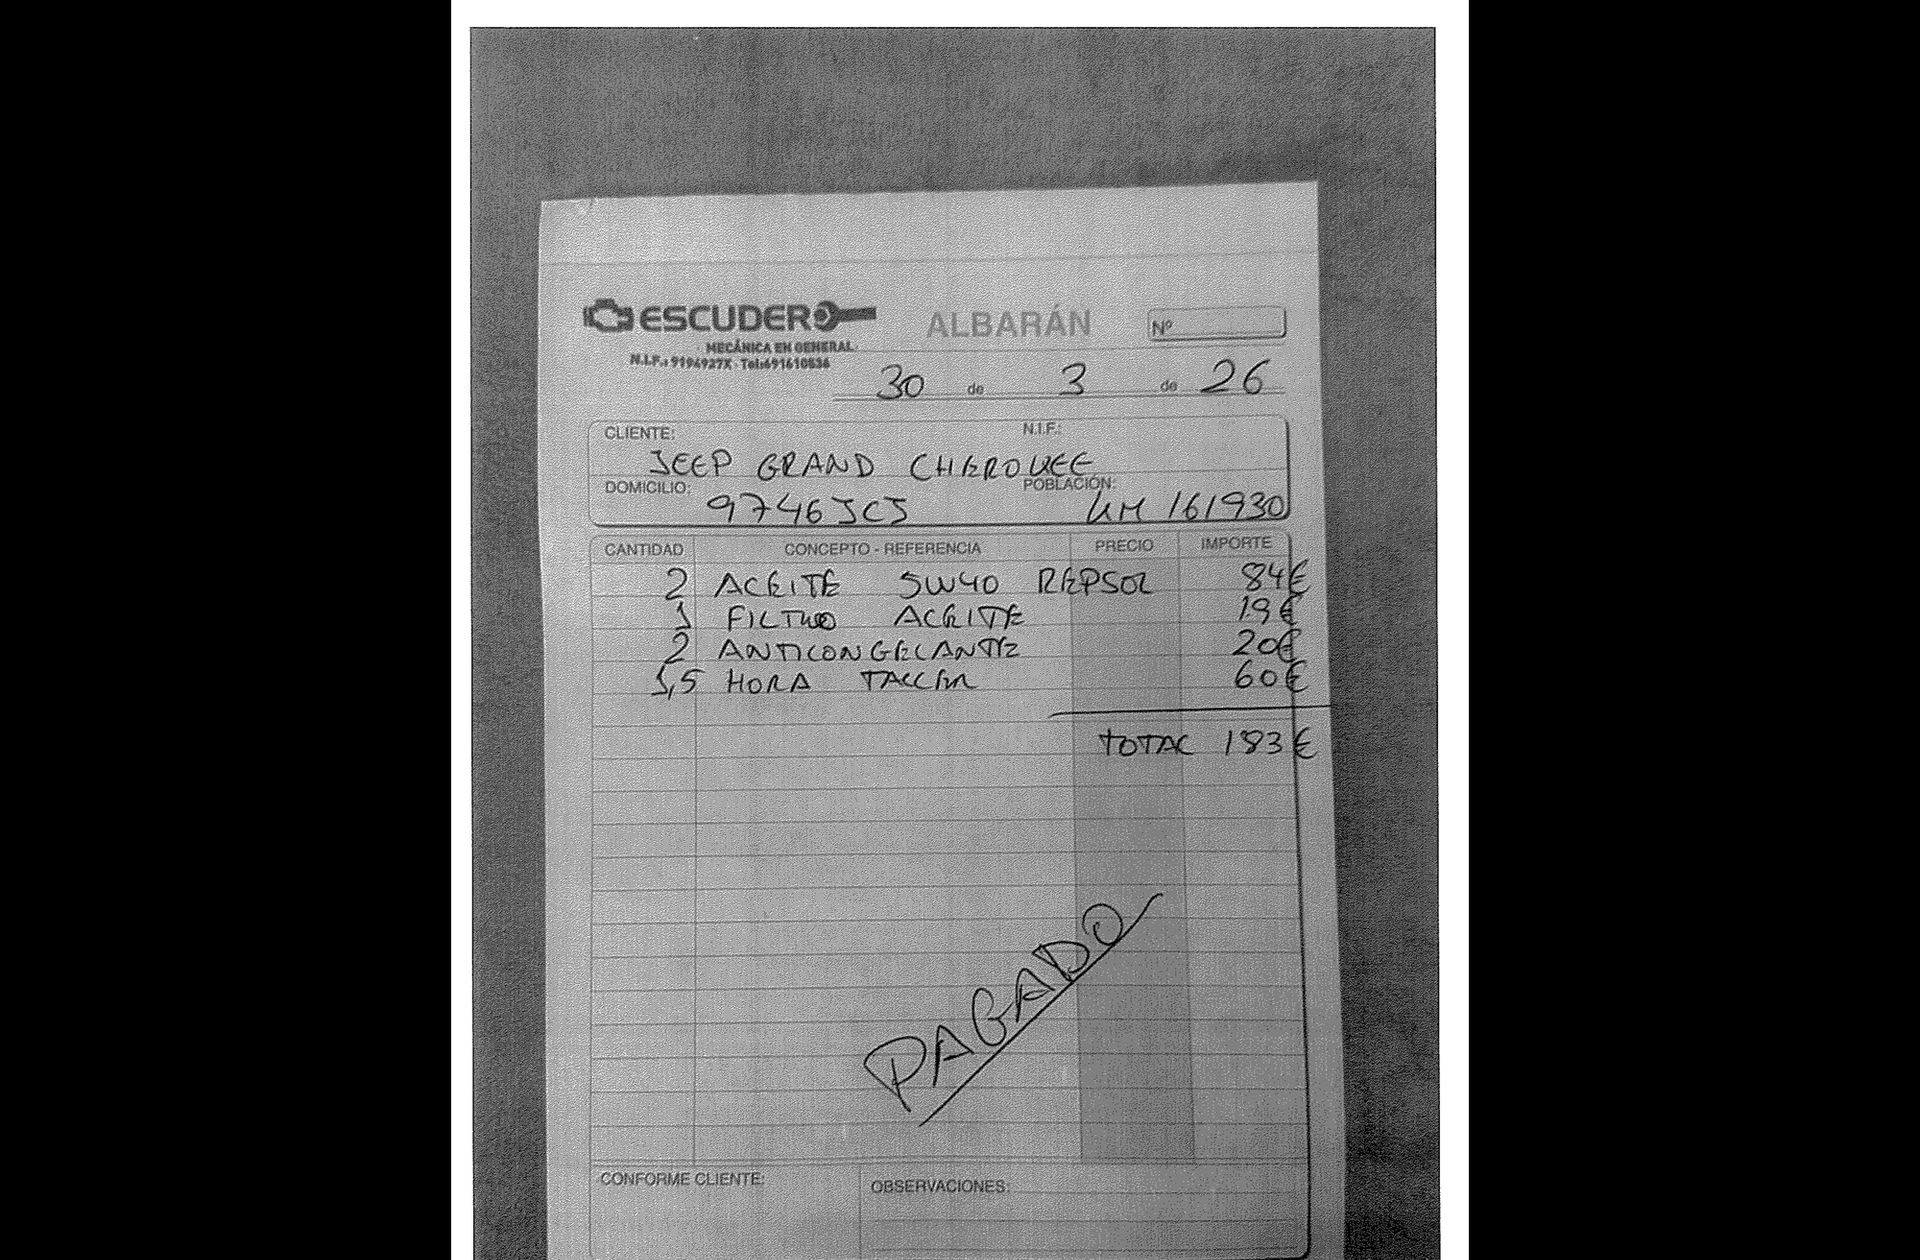 ESCUDERO
ALBARÁN
Nº
MECÁNICA EN GENERAL
N.I.F.: 9194927X · Tel:691610536
30 de 3 de 26
CLIENTE: N.I.F.:
JEEP GRAND CHEROKEE
DOMICILIO: POBLACIÓN:
9746JCJ KM 161930
CANTIDAD CONCEPTO - REFERENCIA PRECIO IMPORTE
2 ACEITE 5W40 REPSOL 84€
1 FILTRO ACEITE 19€
2 ANTICONGELANTE 20€
1,5 HORA TALLER 60€
TOTAL 183€
PAGADO
CONFORME CLIENTE: OBSERVACIONES: